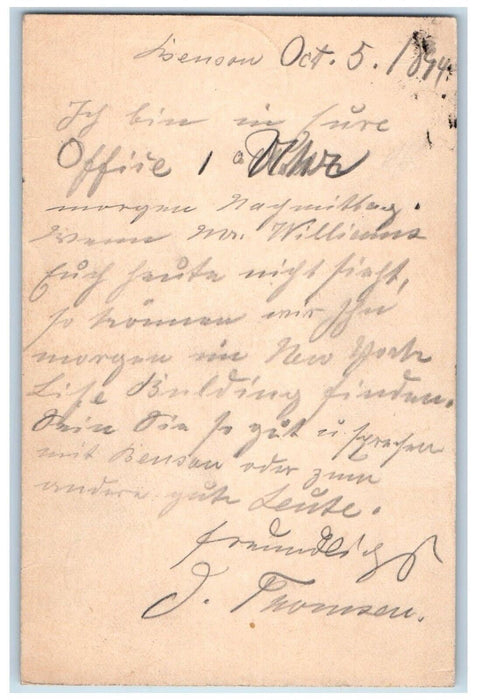 Benson Oct. 5. 1894.
Ich bin in Eure
Office 1 Uhr
morgen Nachmittag.
Wenn Mr. Williams
Euch heute nicht sieht,
so können wir Ihn
morgen im New York
Life Bulding finden.
Sein Sie so gut u sprechen
mit Benson oder zum
andere gute Leute.
freundlichst
J. Thomsen.